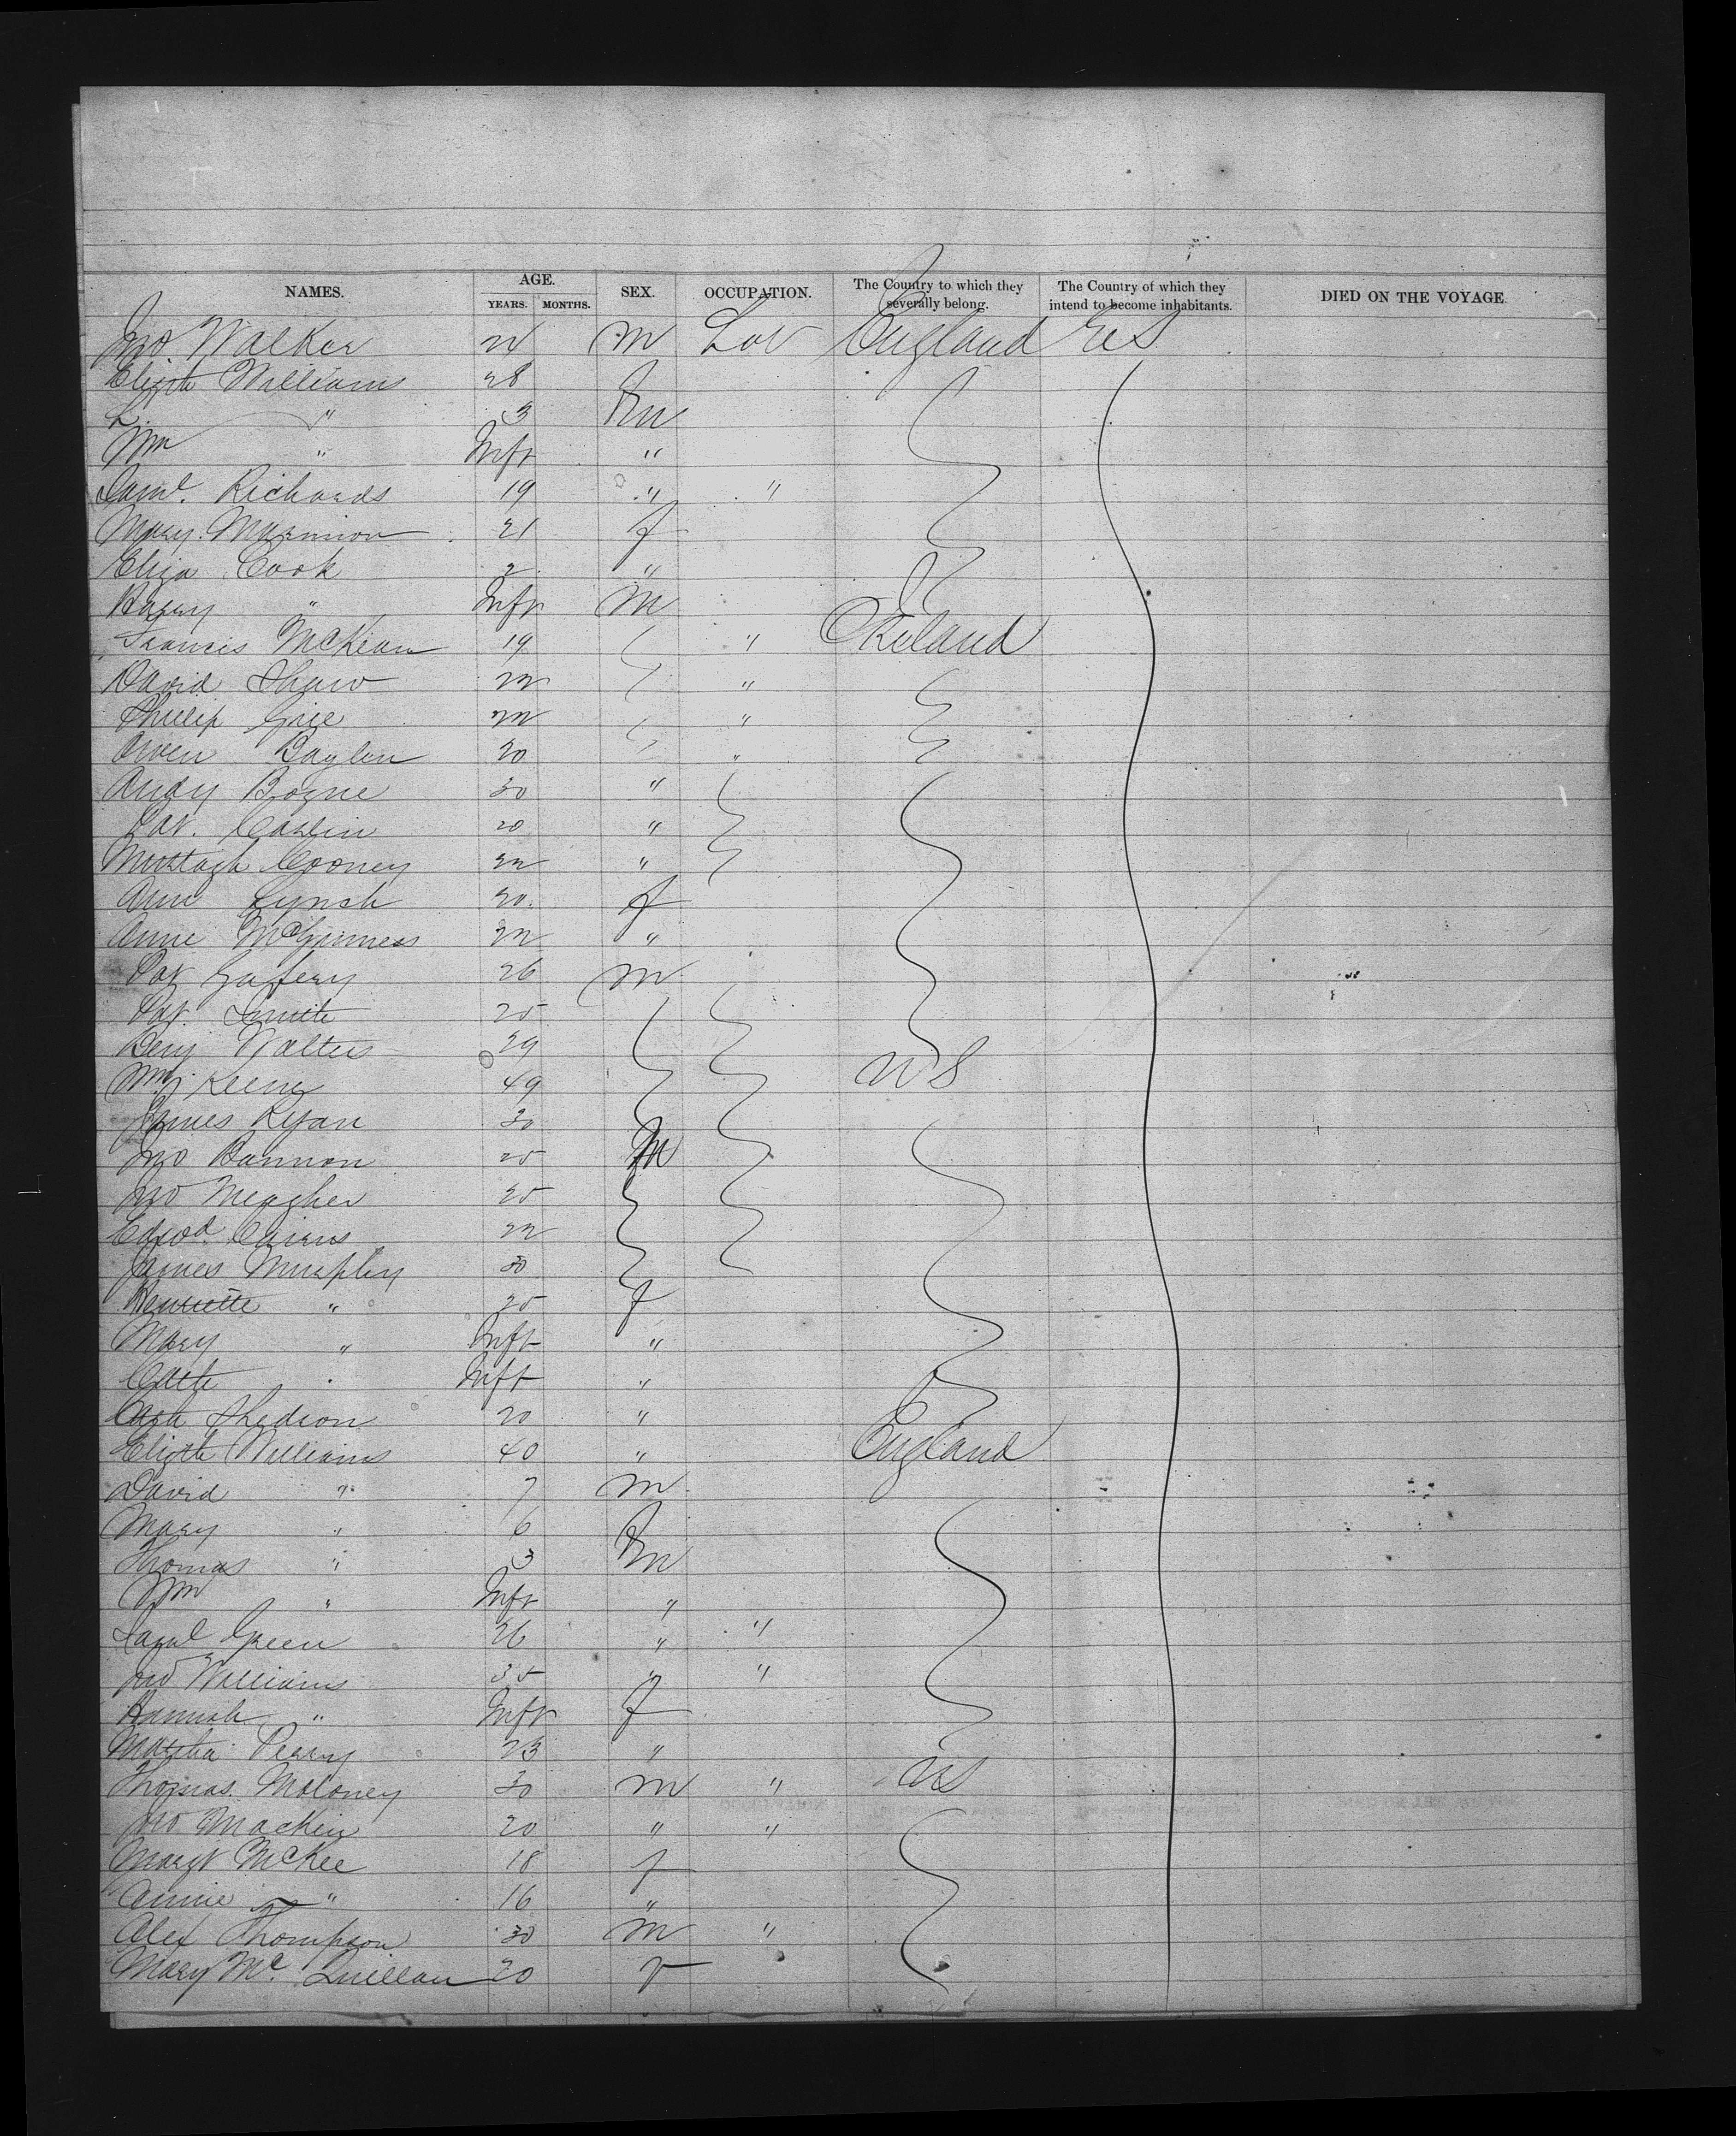 NAMES. AGE. SEX. OCCUPATION. The Country to which they severally belong. The Country of which they intend to become inhabitants. DIED ON THE VOYAGE
YEARS. MONTHS.
Jno. Walker 22 M Lab England U S
Elizth Williams 28 f
L. " 3 m
Wm " Inft "
Saml. Richards 19 " "
Mary Marmion 21 f
Eliza Cook 2 "
Harry " Inft M
Francis McKean 19 " Ireland
David Shaw 22 "
Phillip Grie 22 "
Owen Baylen 20 "
Andy Bogne 30 "
Pat. Caslin 20 "
Murtagh Cooney 22 "
Ann Lynch 20 f
Anne McGinness 22 "
Pat Gafery 26 M
Pat. Smith 25
Benj Walters 29
Wm Keeny 49 U S
James Ryan 30
Jno Bannon 25 M
Jno Meagher 25
Edwd. Cairns 22
James Murphy 30
Henriette " 25 f
Mary " Inft "
Cath " Inft "
Cath Shedion 20 "
Elizth Williams 40 " England
David " 7 M
Mary " 6 f
Thomas " 3 m
Wm " Inft "
Saml Green 26 " "
Jno Williams 35 " "
Hannah " Inft f
Martha Perry 23 "
Thomas Moloney 30 M " U S
Jno Mackin 20 " "
Margt McKee 18 f
Annie " 16 "
Alex Thompson 30 M "
Mary Mc. Quillan 20 f